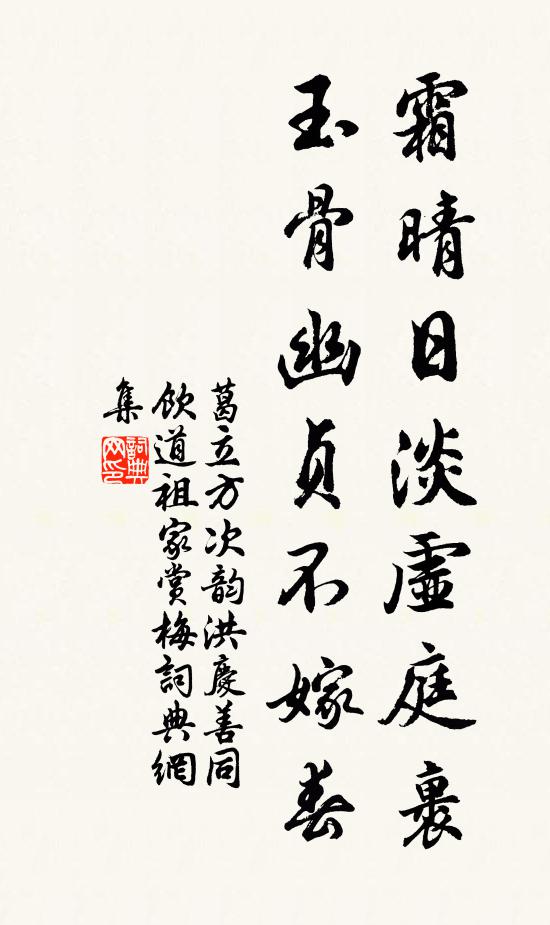 霜晴日淡虛庭裹
玉骨幽貞不嫁春
葛立方次韵洪慶善同
飲道祖家賞梅詞典網
集
詞典
网印